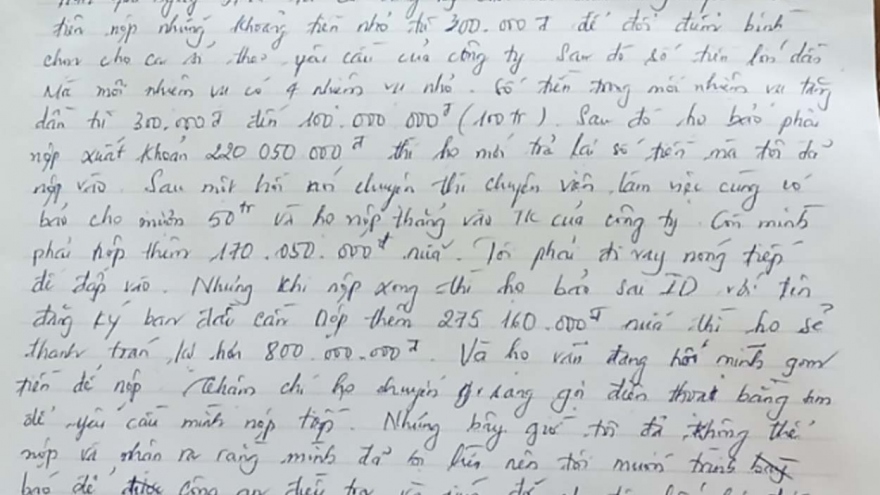 tiền nộp những khoản tiền nhỏ từ 300.000đ để đổi điểm bình
chọn cho ca sĩ theo yêu cầu của công ty Sau đó số tiền lớn dần
Mà mỗi nhiệm vụ có 4 nhiệm vụ nhỏ. Số tiền trong mỗi nhiệm vụ tăng
dần từ 300.000đ đến 100.000 000đ (100tr). Sau đó họ bảo phải
nộp xuất khoản 220 050 000đ thì họ mới trả lại số tiền mà tôi đã
nộp vào. Sau một hồi nói chuyện thì chuyên viên làm việc cùng có
bảo cho mượn 50tr và họ nộp thẳng vào TK của công ty. Còn mình
phải nộp thêm 170.050.000đ nữa. Tôi phải đi vay nóng tiếp
để đắp vào. Nhưng khi nộp xong thì họ bảo sai ID với tên
đăng ký ban đầu cần nộp thêm 275 160.000đ nữa thì họ sẽ
thanh trán lại hơn 800.000.000đ. Và họ vẫn đang hối mình gom
tiền để nộp Thậm chí họ chuyển sang gọi điện thoại bằng sim
để yêu cầu mình nộp tiếp. Nhưng bây giờ tôi đã không thể
nộp và nhận ra rằng mình đã bị lừa nên tôi muốn trình
báo để được công an điều tra